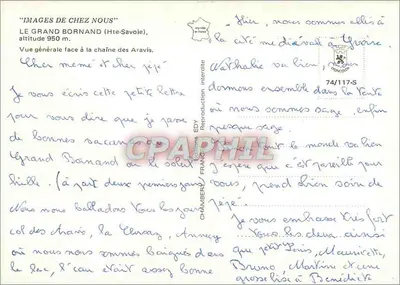 "IMAGES DE CHEZ NOUS"
LE GRAND BORNAND (Hte-Savoie),
altitude 950 m.
Vue générale face à la chaîne des Aravis.
Cher mémé et cher pépé
Je vous écris cette petite lettre
pour vous dire que je passe
de bonnes vacances au
Grand Bornand où le soleil
brille. (à part deux premiers jours)
Nous nous balladons tous les jours
col des Aravis, la Clusaz, Annecy
où nous nous sommes baignés dans
le lac, l'eau était assez bonne
EDY
CHAMBERY FRANCE
Reproduction interdite
74/117-S
CPAPHIL
Hier, nous sommes allés à
la cité médiévale d'Yvoire
Nathalie va bien,
dormons ensemble dans la tente
où nous sommes sage, enfin
presque sage.
tout le monde va bien
j'espère que c'est pareil pour
vous, prend bien soin de
pépé.
Je vous embrasse très fort
tous les deux ainsi
que petit Louis, Mauricette
Bruno, Martine et une
grosse bise à Bénédicte